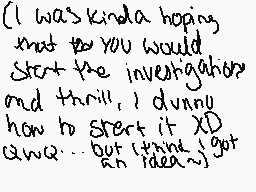 (I was kinda hoping
that YOU would
start the investigation
and thrill, i dunno
how to start it XD
QwQ... but i think i got
an idea~)